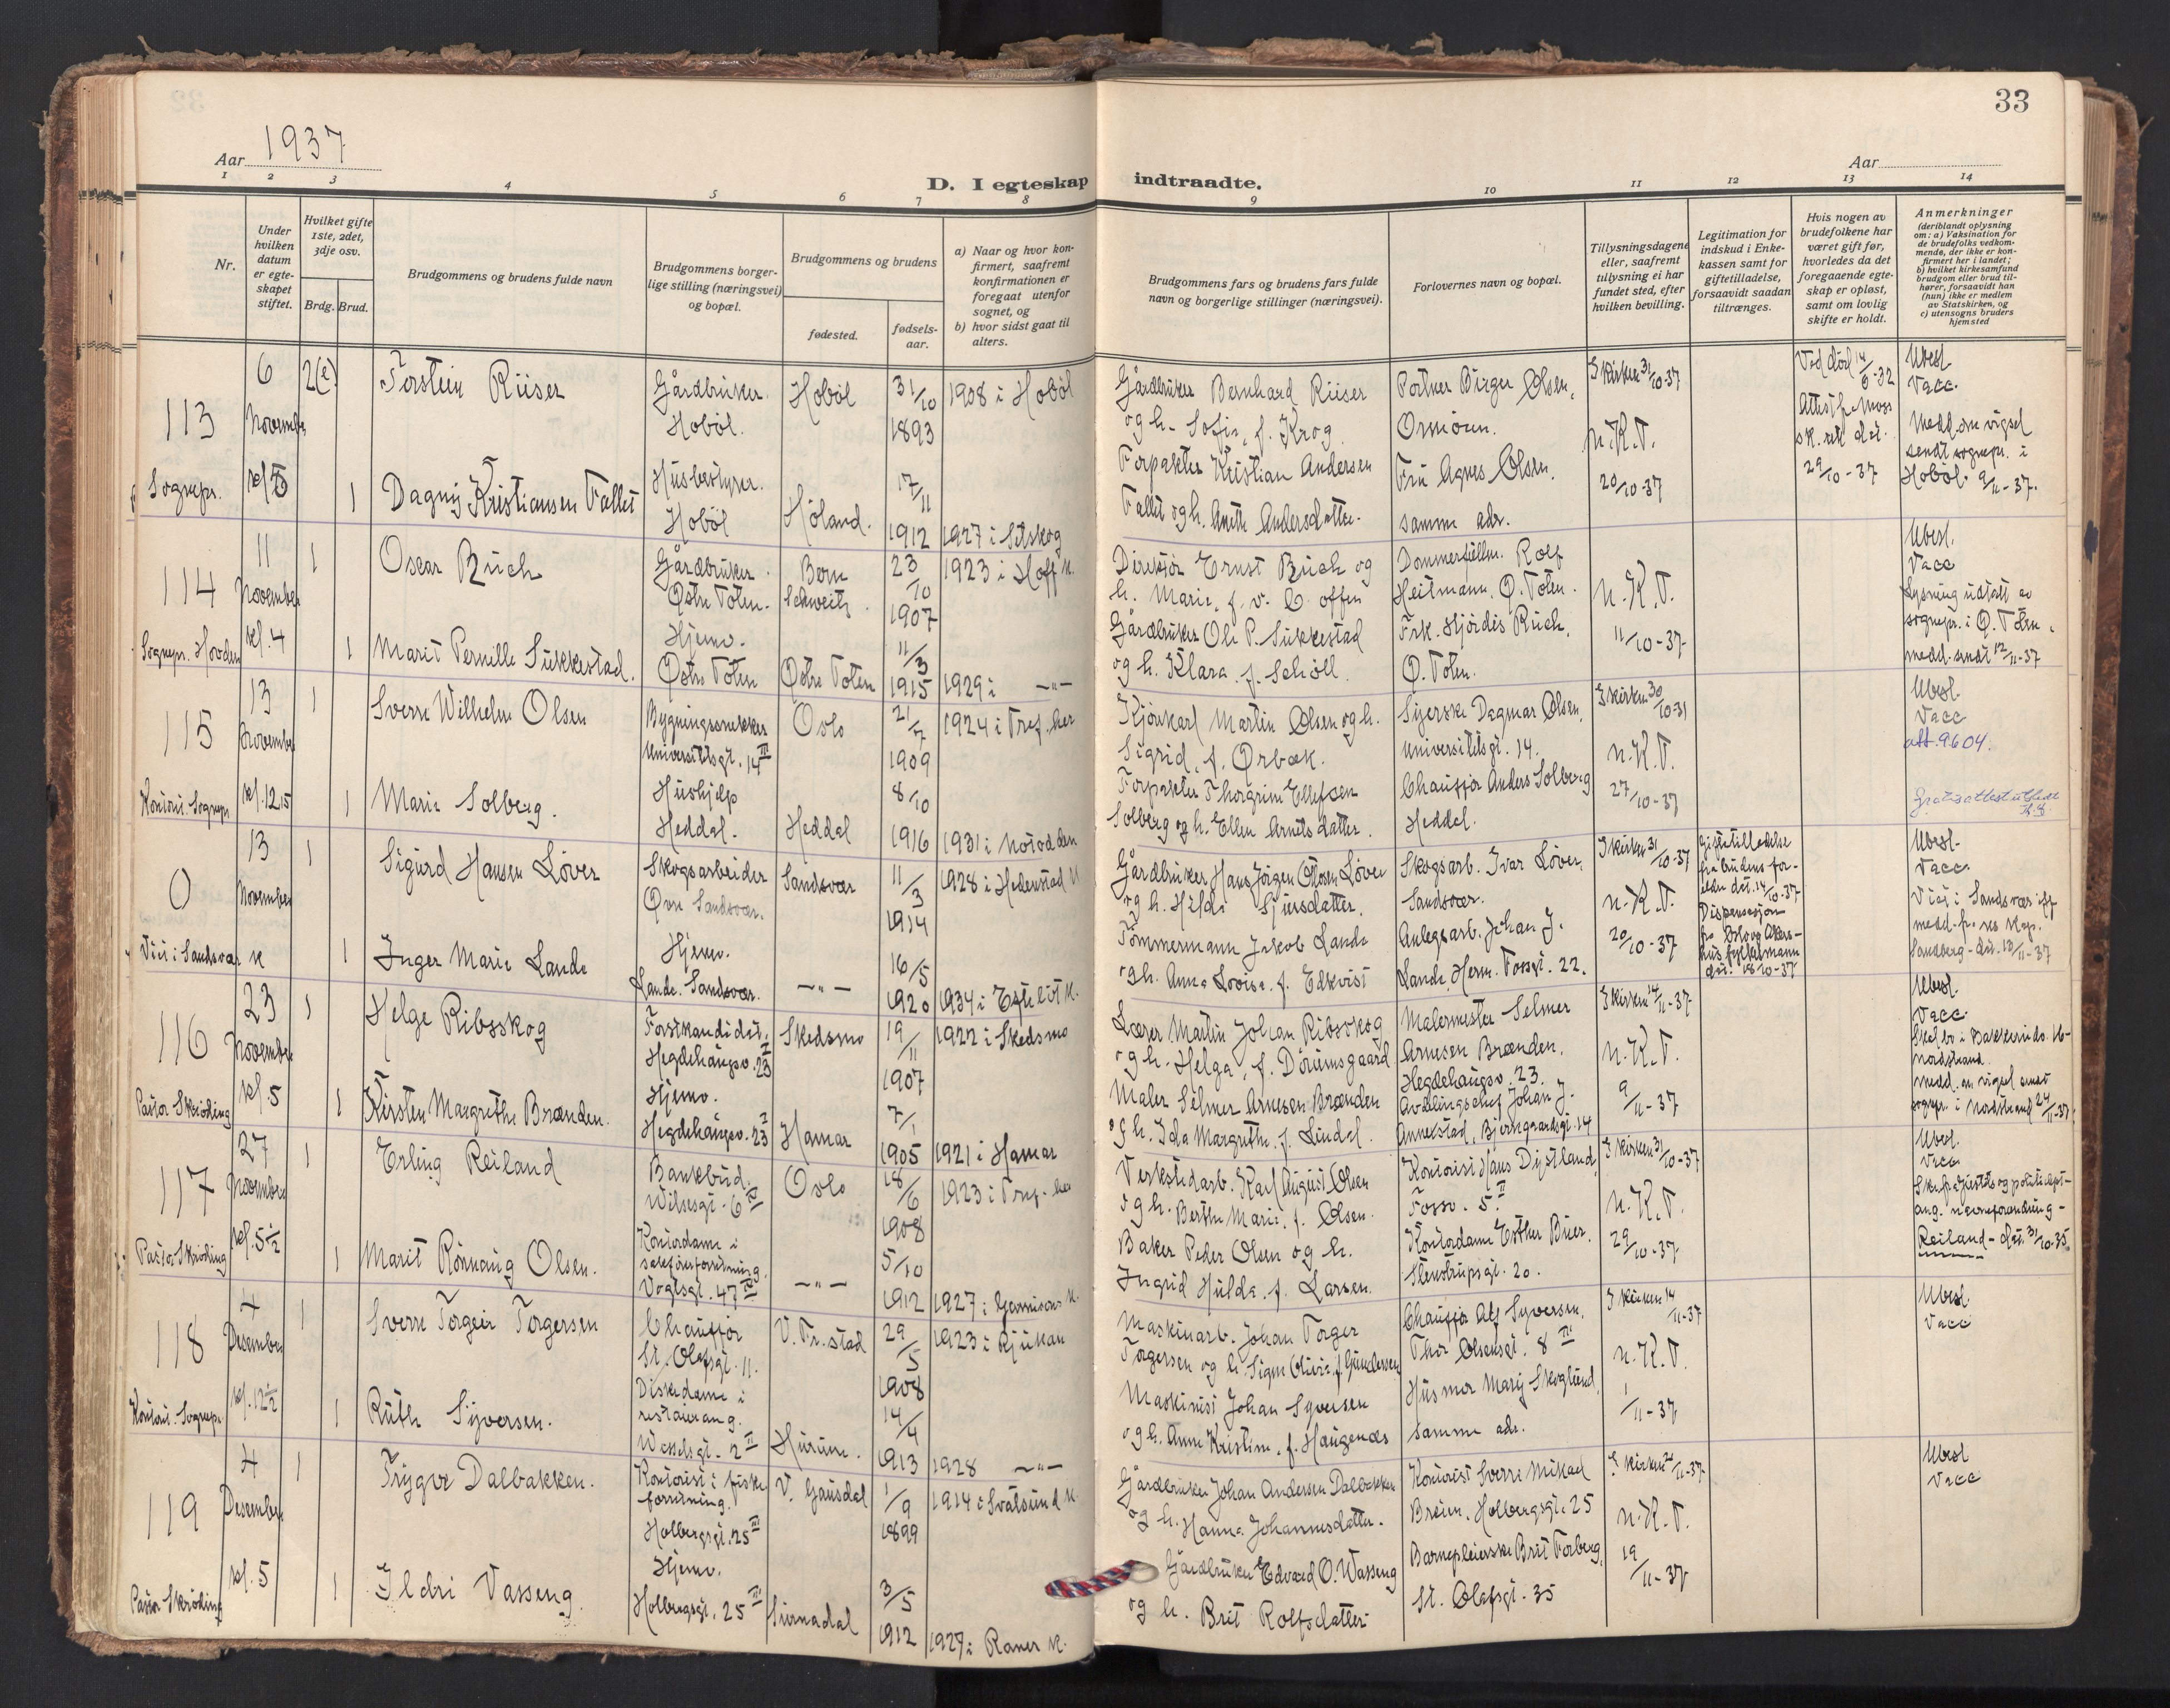 33
Aar 1937
Aar
D. I egteskap indtraadte.
1 2 3 4 5 6 7 8 9 10 11 12 13 14
Nr.
Under hvilken datum er egteskapet stiftet.
Hvilket gifte 1ste, 2det, 3dje osv.
Brdg. Brud.
Brudgommens og brudens fulde navn
Brudgommens borgerlige stilling (næringsvei) og bopæl.
Brudgommens og brudens
fødested.
fødselsaar.
a) Naar og hvor konfirmert, saafremt konfirmationen er foregaat utenfor sognet, og
b) hvor sidst gaat til alters.
Brudgommens fars og brudens fars fulde navn og borgerlige stillinger (næringsvei).
Forlovernes navn og bopæl.
Tillysningsdagene eller, saafremt tillysning ei har fundet sted, efter hvilken bevilling.
Legitimation for indskud i Enkekassen samt for giftetilladelse, forsaavidt saadan tiltrænges.
Hvis nogen av brudefolkene har været gift før, hvorledes da det foregaaende egteskap er opløst, samt om lovlig skifte er holdt.
Anmerkninger
(deriblandt oplysning om: a) Vaksination for de brudefolks vedkommende, der ikke er konfirmert her i landet;
b) hvilket kirkesamfund brudgom eller brud tilhører, forsaavidt han (hun) ikke er medlem av Statskirken, og
c) utensogns bruders hjemsted
113
Sognepr.
6 November kl. 5
2(e)
Torstein Riiser
Gårdbruker. Hobøl.
Hobøl
31/10 1893
1908 i Hobøl
Gårdbruker Bernhard Riiser
og h. Sofie, f. Krog.
Portner Birger Olsen,
I kirken 31/10-37
n.K.T.
20/10-37
Ved død 14/6-32
29/10-37
Ubesl.
Vacc.
Medd. om vigsel
sendt sognepr. i
Hobøl 9/11-37.
1
Dagny Kristiansen Fallet
Husbestyrer. Hobøl
Høland.
17/11 1912
1927 i Setskog
Forpakter Kristian Andersen
Fallet og h. Anette Andersdatter.
Fru Agnes Olsen.
samme adr.
114
Sognepr. Hovden
11 November kl. 4
1
Oscar Ruch
Gårdbruker. Østre Toten.
Bern Schweitz.
23/10 1907
1923 i Hoff k.
Direktør Ernst Ruch og
Dommerfullm. Rolf
Heitmann, Ø. Toten.
n.K.T.
11/10-37
Ubesl.
Vacc
Lysning utført av
sognepr. i Ø. Toten,
medd. sendt 12/11-37
1
Marit Pernille Sukkestad.
Hjemv. Østre Toten
Østre Toten
11/3 1915
1929 i —"—
Gårdbruker Ole P. Sukkestad
og h. Klara f. Schøll.
Frk. Hjørdis Ruch,
Ø. Toten.
115
Kontoret. Sognepr.
13 November kl. 12 15
1
Sverre Wilhelm Olsen
Bygningssnekker
Universitetsgt. 14 III
Oslo
21/7 1909
1924 i Tref. her
Kjørekarl Martin Olsen og h.
Sigrid, f. Ørbæk.
Syerske Dagmar Olsen,
Universitetsgt. 14.
I kirken 30/10-31
n.K.T.
27/10-37
Ubesl.
Vacc
att. 9604.
1
Marie Solberg.
Hushjelp Heddal.
Heddal
8/10 1916
1931 i Notodden
Forpakter Thorgrim Ellefsen
Solberg og h. Ellen Arnetsdatter.
Chauffør Anders Solberg
Heddal.
0
Viet i Sandsvær k
13 November
1
Sigurd Hansen Løver
Skogsarbeider
Øvre Sandsvær.
Sandsvær
11/3 1914
1928 i Hedenstad k
Gårdbruker Hans Jørgen Olsen Løver
Skogsarb. Ivar Løver,
Sandsvær.
I kirken 31/10-37
n.K.T.
20/10-37
Giftetilladelse
fra brudens for-
eldre dat. 14/10-37
Dispensasjon
fra Oslo og Akers-
hus fylkesmann
dat. 18/10-37
Ubesl.
Vacc.
Viet i Sandsvær iflg.
medd. fra res. kap.
Sandberg - dat. 18/11-37
1
Inger Marie Lande
Hjemv.
Lande, Sandsvær.
—"—
16/5 1920
1934 i Efteløt k.
Tømmermann Jakob Lande
og h. Anna Lovise, f. Edkvist
Anlegsarb. Johan J.
Lande, Herm. Fossgt. 22.
116
Pastor Skrøding
23 November kl. 5
1
Helge Ribsskog
Forstkandidat,
Hegdehaugsv. 23 I
Skedsmo
19/11 1907
1922 i Skedsmo
Lærer Martin Johan Ribsskog
og h. Helga, f. Dørumsgaard
Malermester Selmer
Arnesen Brænden,
Hegdehaugsv. 23.
I kirken 14/11-37
n.K.T.
9/11-37
Ubesl.
Vacc.
Skal bo i Bakkerudv. 16
Nordstrand.
1
Kirsten Margrethe Brænden.
Hjemv.
Hegdehaugsv. 23 I
Hamar
7/1 1905
1921 i Hamar
Maler Selmer Arnesen Brænden
og h. Ida Margrethe, f. Lindal.
Avdelingschef Johan J.
Annexstad, Bjerregaardsgt. 14
117
Pastor Skrøding
27 November kl. 5½
1
Erling Reiland
Bankbud.
Wilsesgt. 6 IV
Oslo
18/6 1908
1923 i Tref. her
Verkstedarb. Karl August Olsen
og h. Berthe Marie, f. Olsen.
Kontorist Hans Dystland,
Fossv. 5 II
I kirken 31/10-37
n.K.T.
29/10-37
Ubesl.
Vacc
Skr. fra Justits og politidept.
ang. navneforandring -
Reiland - dat. 31/10-35.
1
Marit Rønnaug Olsen.
Kontordame i
sakførerforretning.
Vogtsgt. 47 IV
—"—
5/10 1912
1927 i Garnisons k.
Baker Peder Olsen og h.
Ingrid Hulda, f. Larsen.
Kontordame Esther Buer.
Stenstrupsgt. 20.
118
Kontoret. Sognepr.
4 Desember kl. 12½
1
Sverre Torgeir Torgersen
Chauffør
St. Olafsgt. 11.
V. Fr.stad
29/5 1908
1923 i Rjukan
Maskinarb. Johan Torger
Torgersen og h. Signe Olivia, f. Gundersen
Chauffør Alf Syversen,
Thor Olsensgt. 8 III
I kirken 14/11-37
n.K.T.
1/11-37
Ubesl.
Vacc
1
Ruth Syversen.
Diskedame i
restaurang.
Wesselsgt. 2 II
Hurum.
14/4 1913
1928 —"—
Maskinist Johan Syversen
og h. Anne Kristine, f. Haugenæs
Husmor Mary Skoglund,
samme adr.
119
Pastor Skrøding
4 Desember kl. 5
1
Trygve Dalbakken.
Kontorist i fiske
forretning.
Holbergsgt. 25 III
V. Gausdal
1/9 1899
1914 i Svatsum k.
Gårdbruker Johan Andersen Dalbakken
og h. Hanna Johannesdatter.
Kontorist Sverre Mikael
Breien, Holbergsgt. 25
I kirken 21/11-37
n.K.T.
19/11-37
Ubesl
Vacc
1
Ildri Vasseng.
Hjemv.
Holbergsgt. 25 III
Surnadal
3/5 1912
1927 i Ranes k.
Gårdbruker Edvard O. Wasseng
og h. Brit Rolfsdatter
Barnepleierske Brit Forberg,
St. Olafsgt. 35